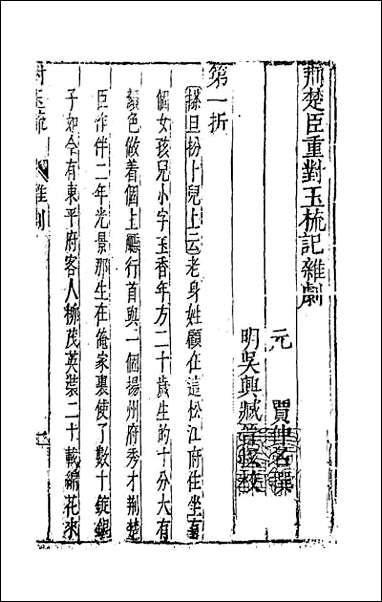 荊楚臣重對玉梳記雜劇
元 賈仲名撰
明吳興臧晉叔校
第一折
搽旦扮卜兒上云老身姓顧在這松江府住坐有
個女孩兒小字玉香年方二十歲生的十分大有
顏色做着個上廳行首與一個揚州府秀才荊楚
臣作伴二年光景那生在俺家裏使了數十錠銀
子如今有東平府客人柳茂英裝二十載綿花來
對玉梳 雜劇